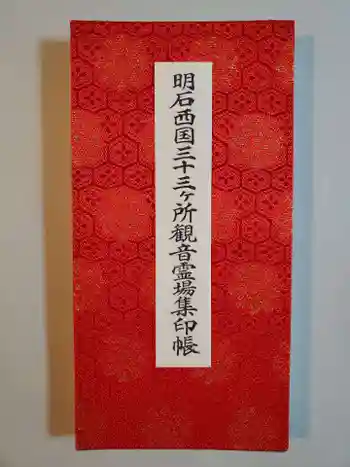 明石西国三十三ヶ所観音霊場集印帳